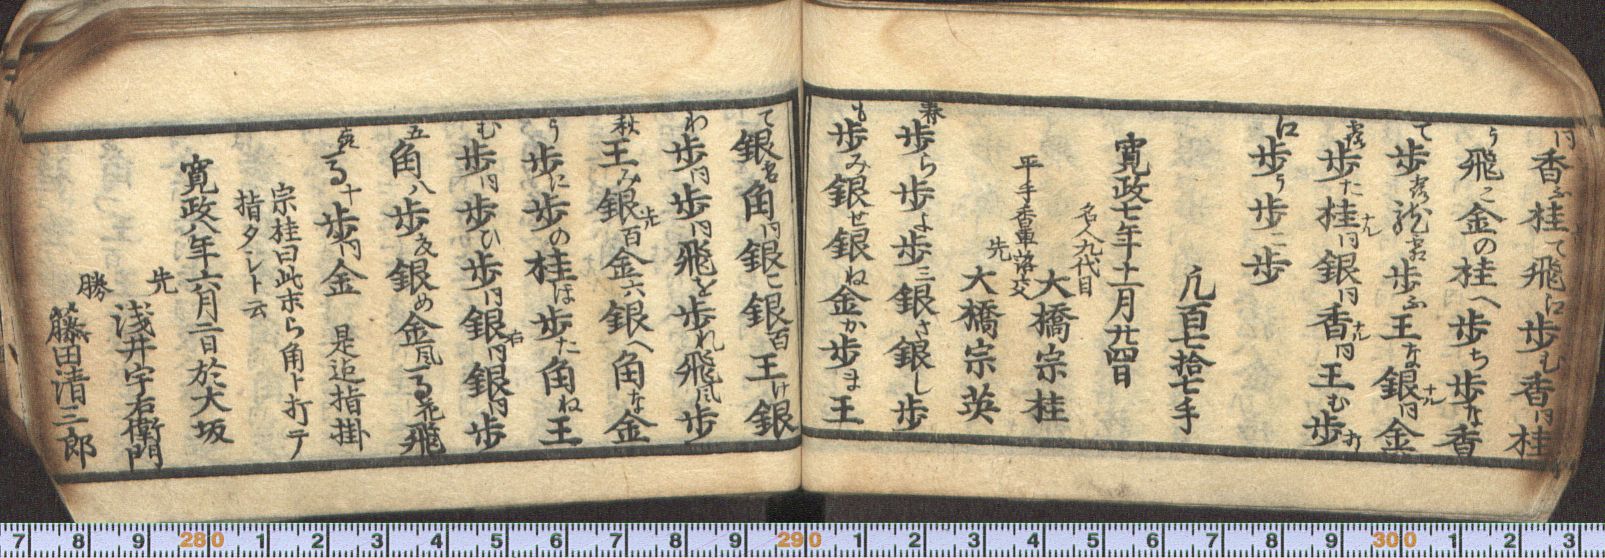 香ふ桂て飛口歩む香円桂
う飛こ金の桂へ歩ち歩な香
て歩龍歩ふ王な銀円金
歩た桂円銀円香円王む歩打
口歩う歩二歩
凡百七拾七手
寛政七年十一月廿四日
名人九代目
平手香車落交
大橋宗桂
先
大橋宗英
春歩ら歩よ歩三銀さ銀し歩
も歩み銀せ銀ね金か歩ま王
て銀も角円銀こ銀百王け銀
わ歩円歩円飛を歩れ飛風歩
秋王み銀先百金六銀へ角な金
う歩に歩の桂ほ歩た角ね王
む歩円歩ひ歩円銀右円銀円歩
五角八歩き銀め金風る花飛
る十歩円金 是迄指掛
宗桂曰此ホら角ト打テ
指タシト云
寛政八年六月二日於大坂
先
浅井宇右衛門
勝
藤田清三郎